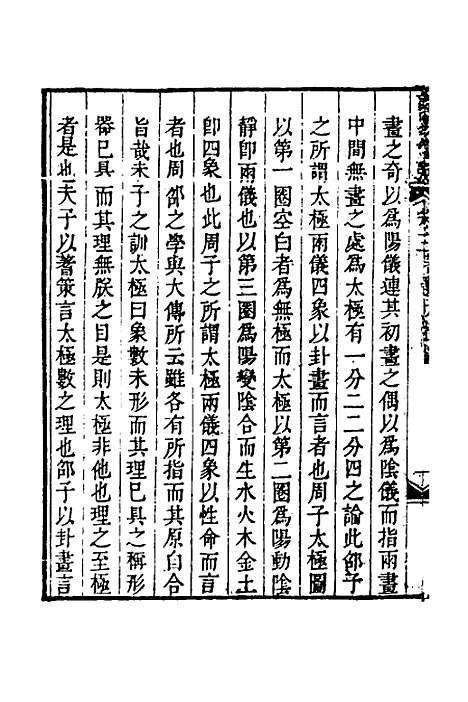 畫之奇以爲陽儀連其初畫之偶以爲陰儀而指兩畫
中間無畫之處爲太極有一分二二分四之論此邵子
之所謂太極兩儀四象以卦畫而言者也周子太極圖
以第一圈空白者爲無極而太極以第二圈爲陽動陰
靜卽兩儀也以第三圈爲陽變陰合而生水火木金土
卽四象也此周子之所謂太極兩儀四象以性命而言
者也周邵之學與大傳所云雖各有所指而其原自合
旨哉朱子之訓太極曰象數未形而其理已具之稱形
器已具而其理無朕之目是則太極非他也理之至極
者是也夫子以蓍策言太極數之理也邵子以卦畫言